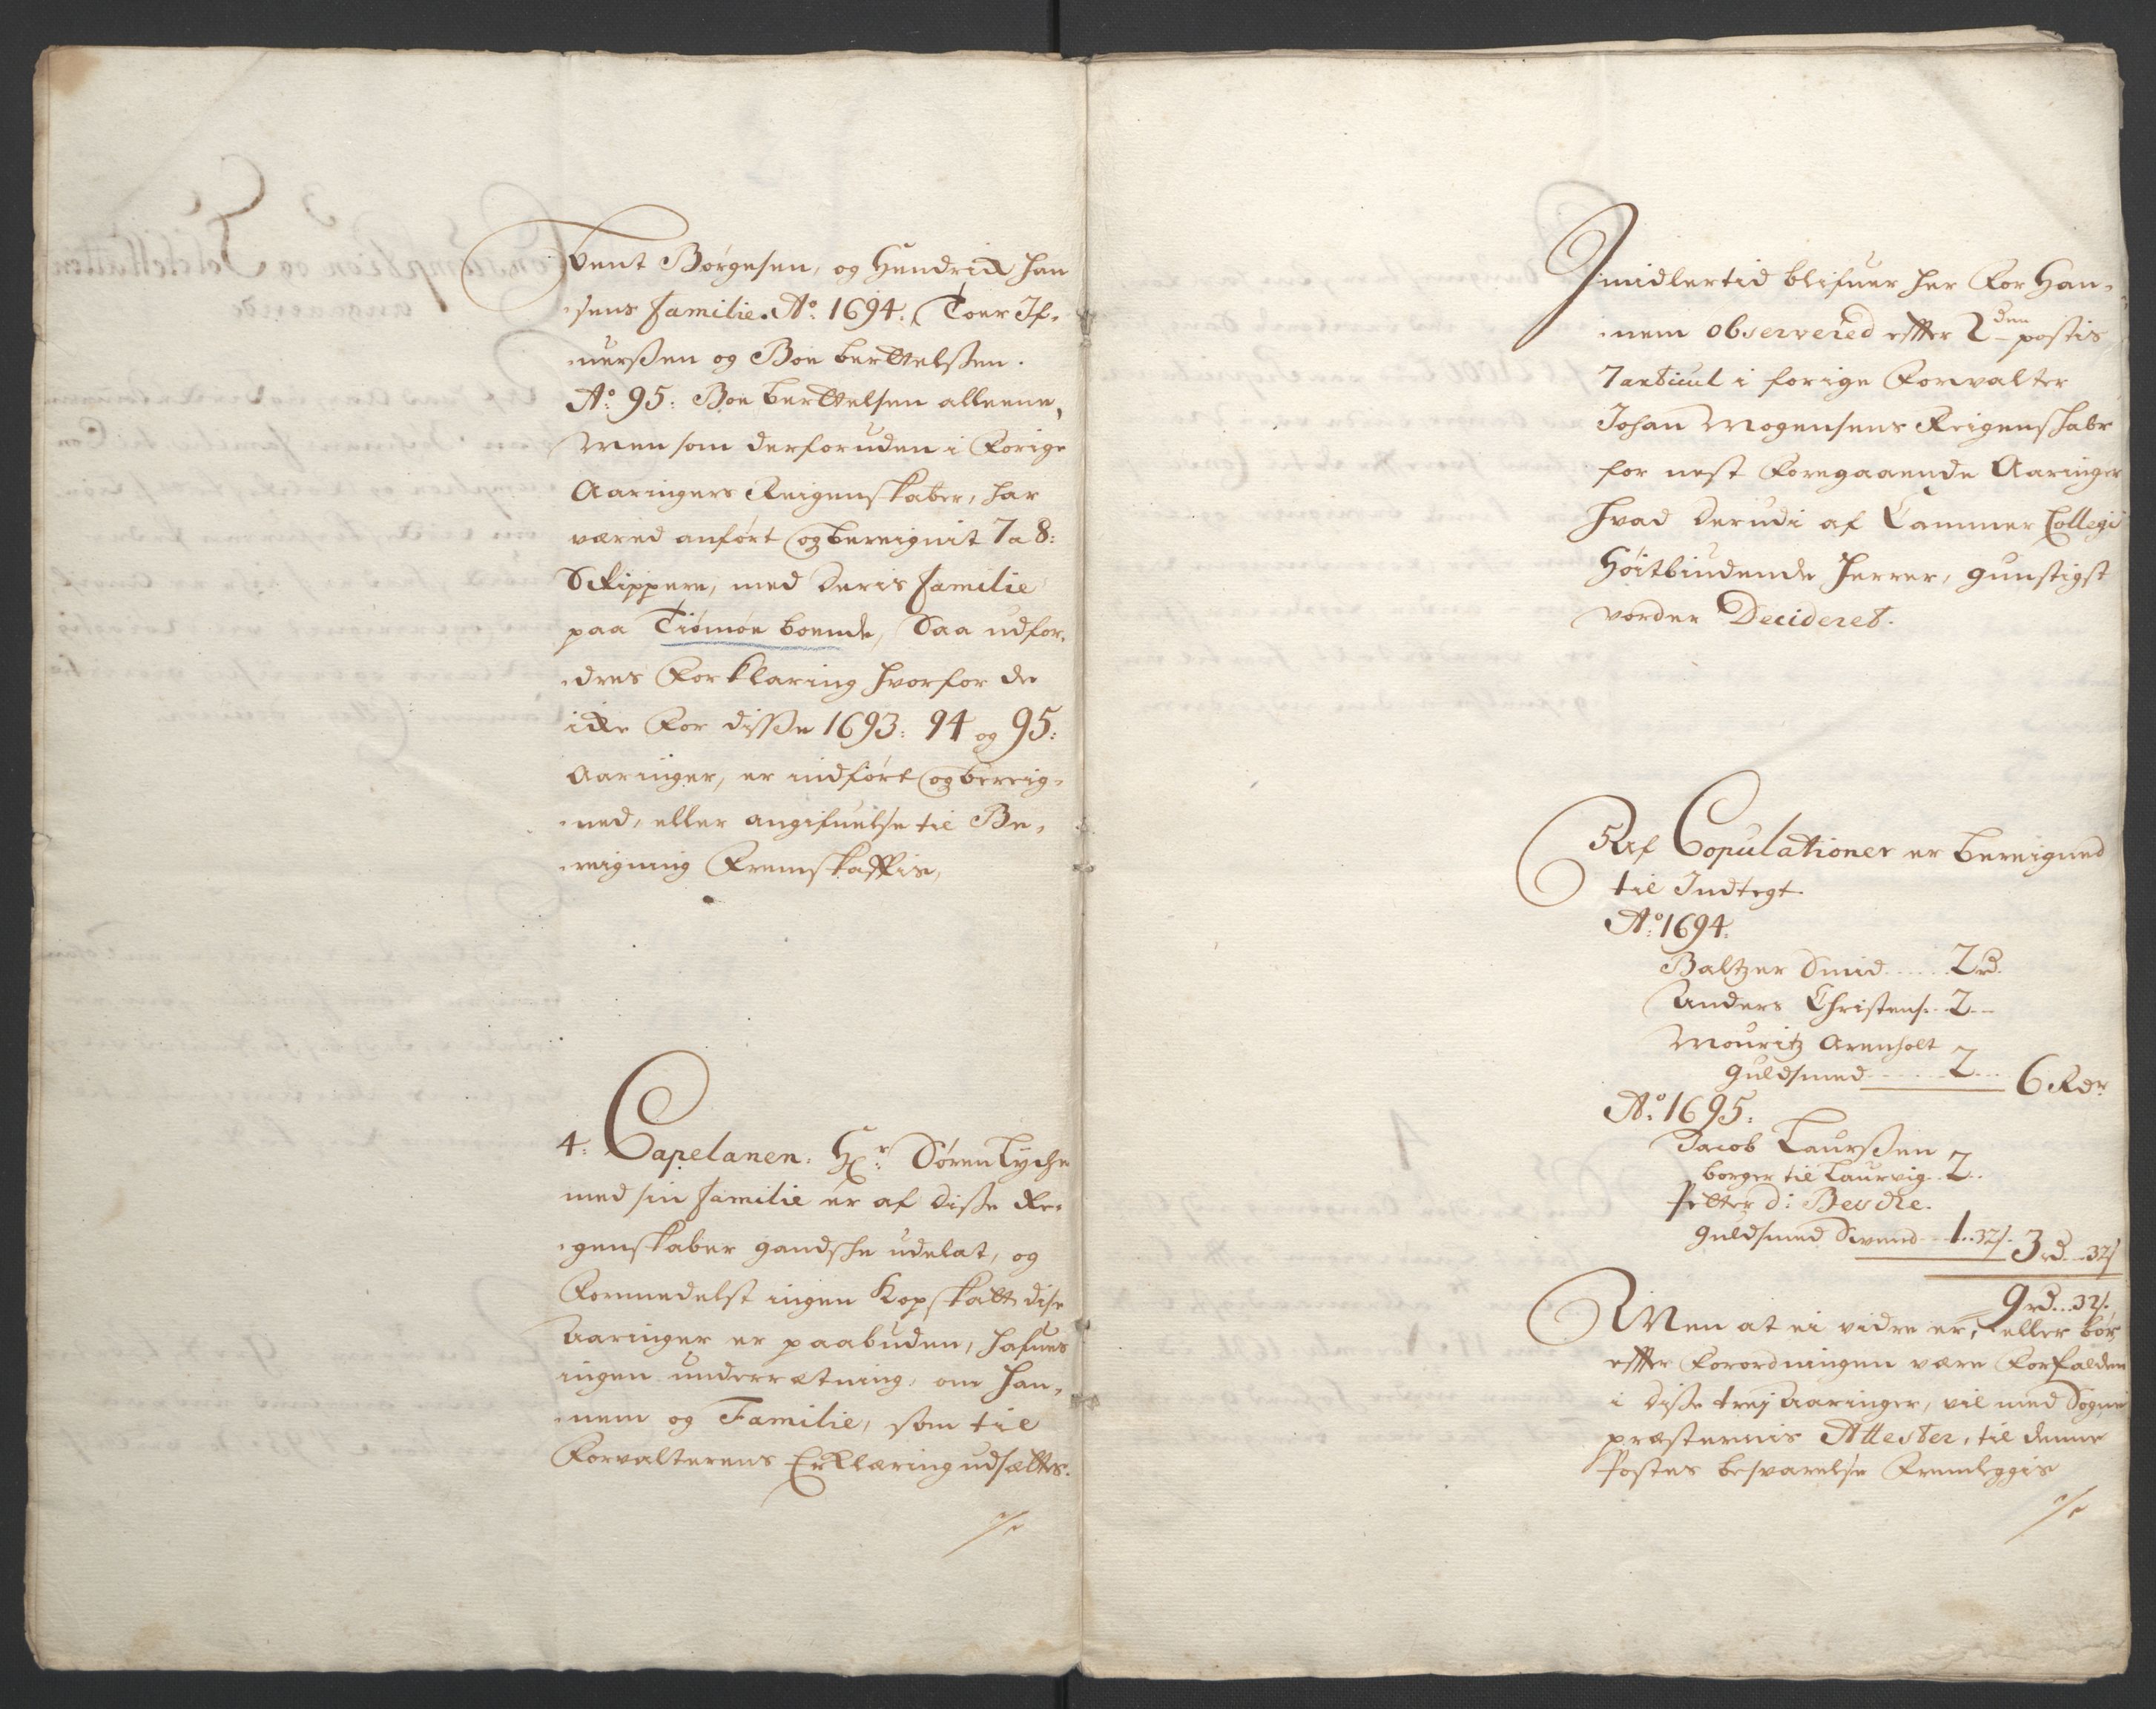 Svent Børgesen, og Hendrich Han
sens familie. Ao. 1694. Toer If-
uerßen og Boe berttelßen.
Ao. 95: Boe berttelsen alleene,
Men som derforuden i Forige
Aaringers Reigenskaber, har
væred anført og bereignit 7 a 8:
Skippere, med deris familie
paa Tiømøe boende, Saa udfor-
dres Forklaring hvorfor de
icke For disße 1693: 94 og 95:
Aaringer, er indført og bereig-
ned, eller angifuelse til Be-
reigning Fremskaffis,
4: Capelanen: Hr. Søren Lyche
med sin familie er af disse Re-
genskaber gandsche udelat, og
Formedelst ingen Kopskatt dise
Aaringer er paabuden, hafues
ingen underrætning, om han-
nem og Familie, som til
Forvalterens Erklæring udsættes.
Imidlertid blifuer her For Han-
nem observered effter 2den postis
7 articul i forige Forvalter
Johan Mogensens Reigenskabr
for nest Foregaaende Aaringer
hvad derudi af Cammer Collegi
Høitbiudende Herrer, gunstigst
vorder Decideret.
5 Af Copulationer er bereigned
til Indtegt.
Ao. 1694.
Baltzer Smid ..... 2 rd.
Anders Christens. .. 2 ..
Mouritz Arenholt
guldsmed ...... 2 ... 6 Rdr
Ao. 1695:
Jacob Laurßen
borger til Laurvig .. 2 ..
Petter d:
guldsmed Svend ... 1 .. 32 s. 3 rd .. 32 s
9 rd .. 32 s.
Men at ei vidre er, eller bør
effter Forordningen være Forfalden
i disse trej Aaringer, vil med Sogne
præsternis Attester, til denne
Postes besvarelse Fremleggis